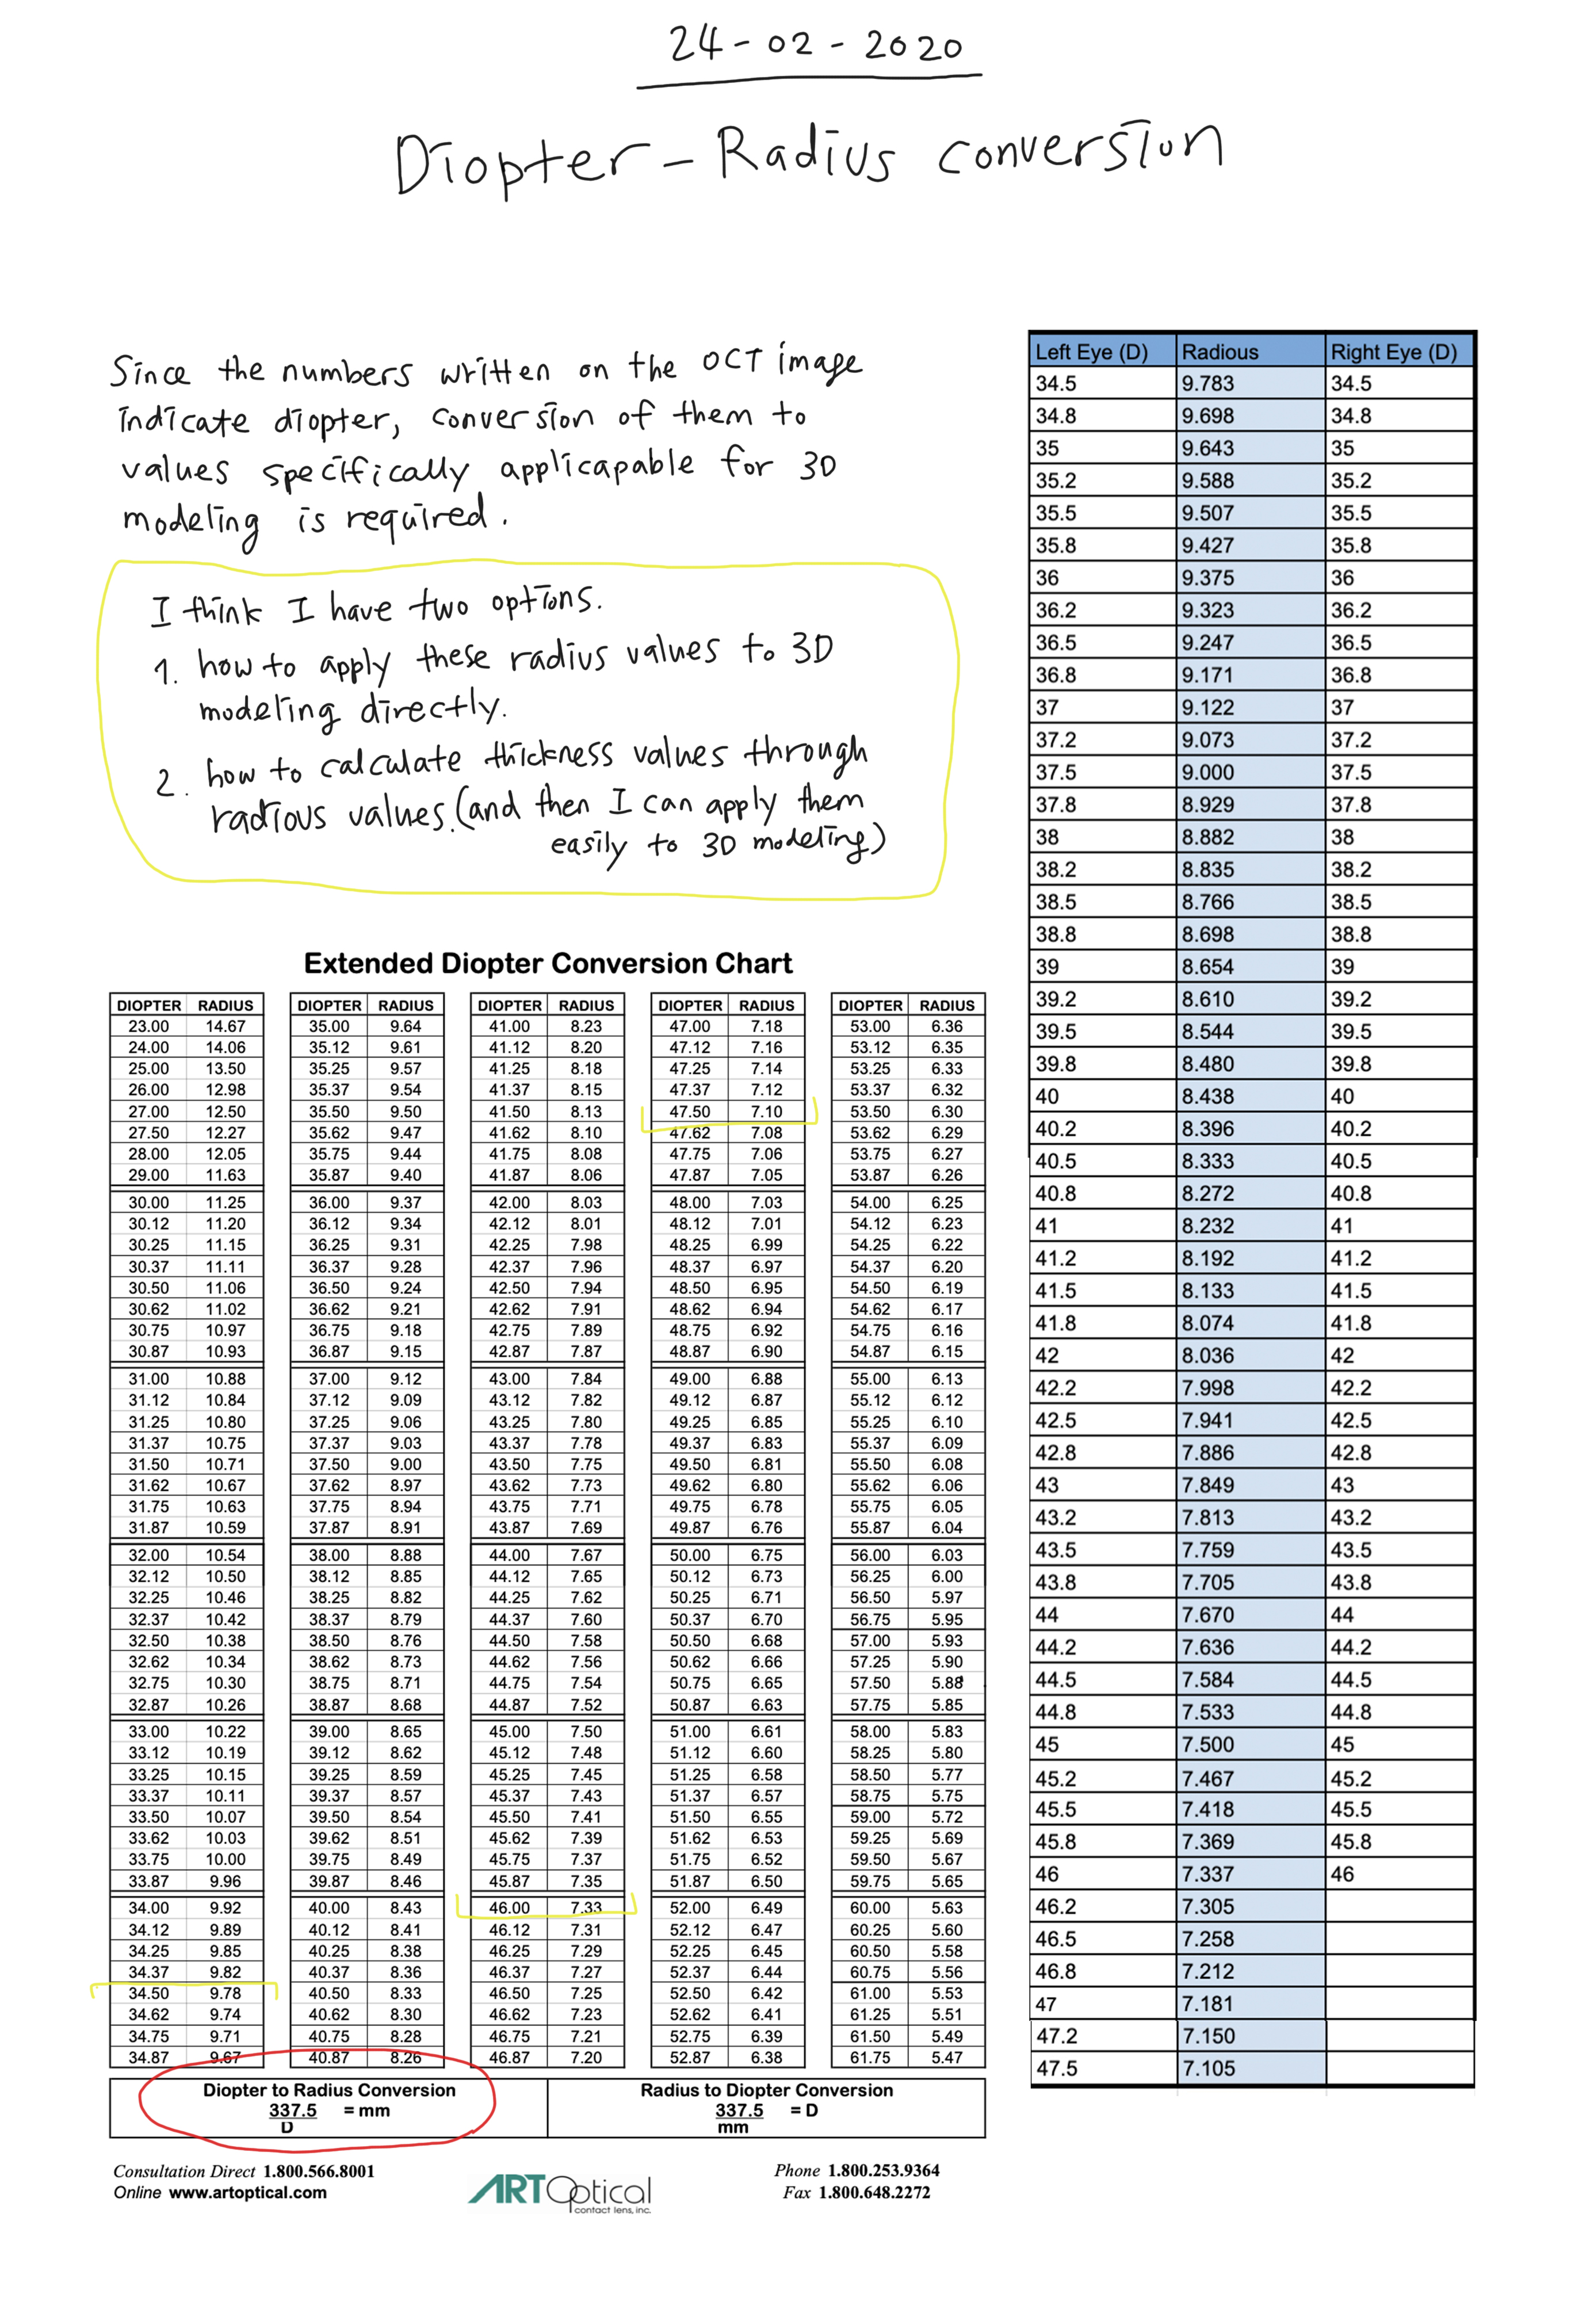 24-02-2020
Diopter-Radius conversion
Since the numbers written on the OCT image
indicate diopter, conversion of them to
values specifically applicapable for 3D
modeling is required.
I think I have two options.
1. how to apply these radius values to 3D
modeling directly.
2. how to calculate thickness values through
radious values.(and then I can apply them
easily to 3D modeling)
Extended Diopter Conversion Chart
DIOPTER RADIUS DIOPTER RADIUS DIOPTER RADIUS DIOPTER RADIUS DIOPTER RADIUS
23.00 14.67 35.00 9.64 41.00 8.23 47.00 7.18 53.00 6.36
24.00 14.06 35.12 9.61 41.12 8.20 47.12 7.16 53.12 6.35
25.00 13.50 35.25 9.57 41.25 8.18 47.25 7.14 53.25 6.33
26.00 12.98 35.37 9.54 41.37 8.15 47.37 7.12 53.37 6.32
27.00 12.50 35.50 9.50 41.50 8.13 47.50 7.10 53.50 6.30
27.50 12.27 35.62 9.47 41.62 8.10 47.62 7.08 53.62 6.29
28.00 12.05 35.75 9.44 41.75 8.08 47.75 7.06 53.75 6.27
29.00 11.63 35.87 9.40 41.87 8.06 47.87 7.05 53.87 6.26
30.00 11.25 36.00 9.37 42.00 8.03 48.00 7.03 54.00 6.25
30.12 11.20 36.12 9.34 42.12 8.01 48.12 7.01 54.12 6.23
30.25 11.15 36.25 9.31 42.25 7.98 48.25 6.99 54.25 6.22
30.37 11.11 36.37 9.28 42.37 7.96 48.37 6.97 54.37 6.20
30.50 11.06 36.50 9.24 42.50 7.94 48.50 6.95 54.50 6.19
30.62 11.02 36.62 9.21 42.62 7.91 48.62 6.94 54.62 6.17
30.75 10.97 36.75 9.18 42.75 7.89 48.75 6.92 54.75 6.16
30.87 10.93 36.87 9.15 42.87 7.87 48.87 6.90 54.87 6.15
31.00 10.88 37.00 9.12 43.00 7.84 49.00 6.88 55.00 6.13
31.12 10.84 37.12 9.09 43.12 7.82 49.12 6.87 55.12 6.12
31.25 10.80 37.25 9.06 43.25 7.80 49.25 6.85 55.25 6.10
31.37 10.75 37.37 9.03 43.37 7.78 49.37 6.83 55.37 6.09
31.50 10.71 37.50 9.00 43.50 7.75 49.50 6.81 55.50 6.08
31.62 10.67 37.62 8.97 43.62 7.73 49.62 6.80 55.62 6.06
31.75 10.63 37.75 8.94 43.75 7.71 49.75 6.78 55.75 6.05
31.87 10.59 37.87 8.91 43.87 7.69 49.87 6.76 55.87 6.04
32.00 10.54 38.00 8.88 44.00 7.67 50.00 6.75 56.00 6.03
32.12 10.50 38.12 8.85 44.12 7.65 50.12 6.73 56.25 6.00
32.25 10.46 38.25 8.82 44.25 7.62 50.25 6.71 56.50 5.97
32.37 10.42 38.37 8.79 44.37 7.60 50.37 6.70 56.75 5.95
32.50 10.38 38.50 8.76 44.50 7.58 50.50 6.68 57.00 5.93
32.62 10.34 38.62 8.73 44.62 7.56 50.62 6.66 57.25 5.90
32.75 10.30 38.75 8.71 44.75 7.54 50.75 6.65 57.50 5.88
32.87 10.26 38.87 8.68 44.87 7.52 50.87 6.63 57.75 5.85
33.00 10.22 39.00 8.65 45.00 7.50 51.00 6.61 58.00 5.83
33.12 10.19 39.12 8.62 45.12 7.48 51.12 6.60 58.25 5.80
33.25 10.15 39.25 8.59 45.25 7.45 51.25 6.58 58.50 5.77
33.37 10.11 39.37 8.57 45.37 7.43 51.37 6.57 58.75 5.75
33.50 10.07 39.50 8.54 45.50 7.41 51.50 6.55 59.00 5.72
33.62 10.03 39.62 8.51 45.62 7.39 51.62 6.53 59.25 5.69
33.75 10.00 39.75 8.49 45.75 7.37 51.75 6.52 59.50 5.67
33.87 9.96 39.87 8.46 45.87 7.35 51.87 6.50 59.75 5.65
34.00 9.92 40.00 8.43 46.00 7.33 52.00 6.49 60.00 5.63
34.12 9.89 40.12 8.41 46.12 7.31 52.12 6.47 60.25 5.60
34.25 9.85 40.25 8.38 46.25 7.29 52.25 6.45 60.50 5.58
34.37 9.82 40.37 8.36 46.37 7.27 52.37 6.44 60.75 5.56
34.50 9.78 40.50 8.33 46.50 7.25 52.50 6.42 61.00 5.53
34.62 9.74 40.62 8.30 46.62 7.23 52.62 6.41 61.25 5.51
34.75 9.71 40.75 8.28 46.75 7.21 52.75 6.39 61.50 5.49
34.87 9.67 40.87 8.26 46.87 7.20 52.87 6.38 61.75 5.47
Diopter to Radius Conversion
337.5 = mm
D
Radius to Diopter Conversion
337.5 = D
mm
Consultation Direct 1.800.566.8001
Online www.artoptical.com
ARTOptical
contact lens, inc.
Phone 1.800.253.9364
Fax 1.800.648.2272
Left Eye (D) Radious Right Eye (D)
34.5 9.783 34.5
34.8 9.698 34.8
35 9.643 35
35.2 9.588 35.2
35.5 9.507 35.5
35.8 9.427 35.8
36 9.375 36
36.2 9.323 36.2
36.5 9.247 36.5
36.8 9.171 36.8
37 9.122 37
37.2 9.073 37.2
37.5 9.000 37.5
37.8 8.929 37.8
38 8.882 38
38.2 8.835 38.2
38.5 8.766 38.5
38.8 8.698 38.8
39 8.654 39
39.2 8.610 39.2
39.5 8.544 39.5
39.8 8.480 39.8
40 8.438 40
40.2 8.396 40.2
40.5 8.333 40.5
40.8 8.272 40.8
41 8.232 41
41.2 8.192 41.2
41.5 8.133 41.5
41.8 8.074 41.8
42 8.036 42
42.2 7.998 42.2
42.5 7.941 42.5
42.8 7.886 42.8
43 7.849 43
43.2 7.813 43.2
43.5 7.759 43.5
43.8 7.705 43.8
44 7.670 44
44.2 7.636 44.2
44.5 7.584 44.5
44.8 7.533 44.8
45 7.500 45
45.2 7.467 45.2
45.5 7.418 45.5
45.8 7.369 45.8
46 7.337 46
46.2 7.305
46.5 7.258
46.8 7.212
47 7.181
47.2 7.150
47.5 7.105